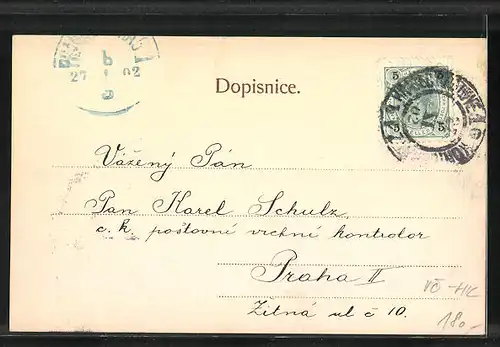 27 1 02
6
9
Dopisnice.
5 5
5 5
Vážený Pán
Pan Karel Schulz
c. k. poštovní vrchní kontrolor
Praha II
Žitná ul č 10.
VČ-HK
180,-